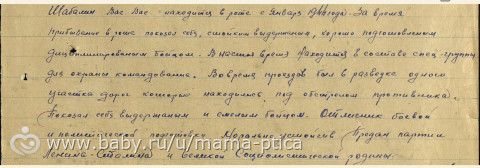 Шаталин Вас Вас - находится в роте с Января 194 года. За время
пребывание в роте показал себя, стойким выдержанным, хорошо подготовленным
дисциплинированым бойцом. В настоящ время находится в составе спец-группы
для охраны командования. Во время проездов был в разведке одного
участка дорог который находились под обстрелом противника.
Показал себя выдержанным и смелым бойцом. Отличник боевой
и политической подготовки. Морально-устойчив. Предан партии
Ленина-Сталина и великой Социалистической родины.
www.baby.ru/u/mama-ptica